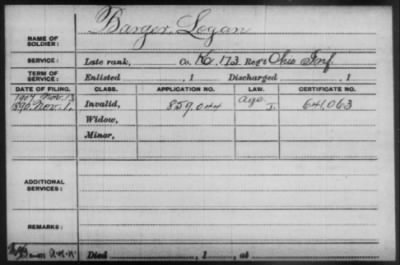 Barger, Logan
NAME OF SOLDIER:
SERVICE: Late rank, Co. K, 173 Reg't Ohio Inf.
TERM OF SERVICE: Enlisted , 1 Discharged , 1
DATE OF FILING. CLASS. APPLICATION NO. LAW. CERTIFICATE NO.
1907 Nov. 13 age
1890. Nov. 1, Invalid, 859,044 J. 641,063
Widow,
Minor,
ADDITIONAL SERVICES:
REMARKS:
Died , 1 , at